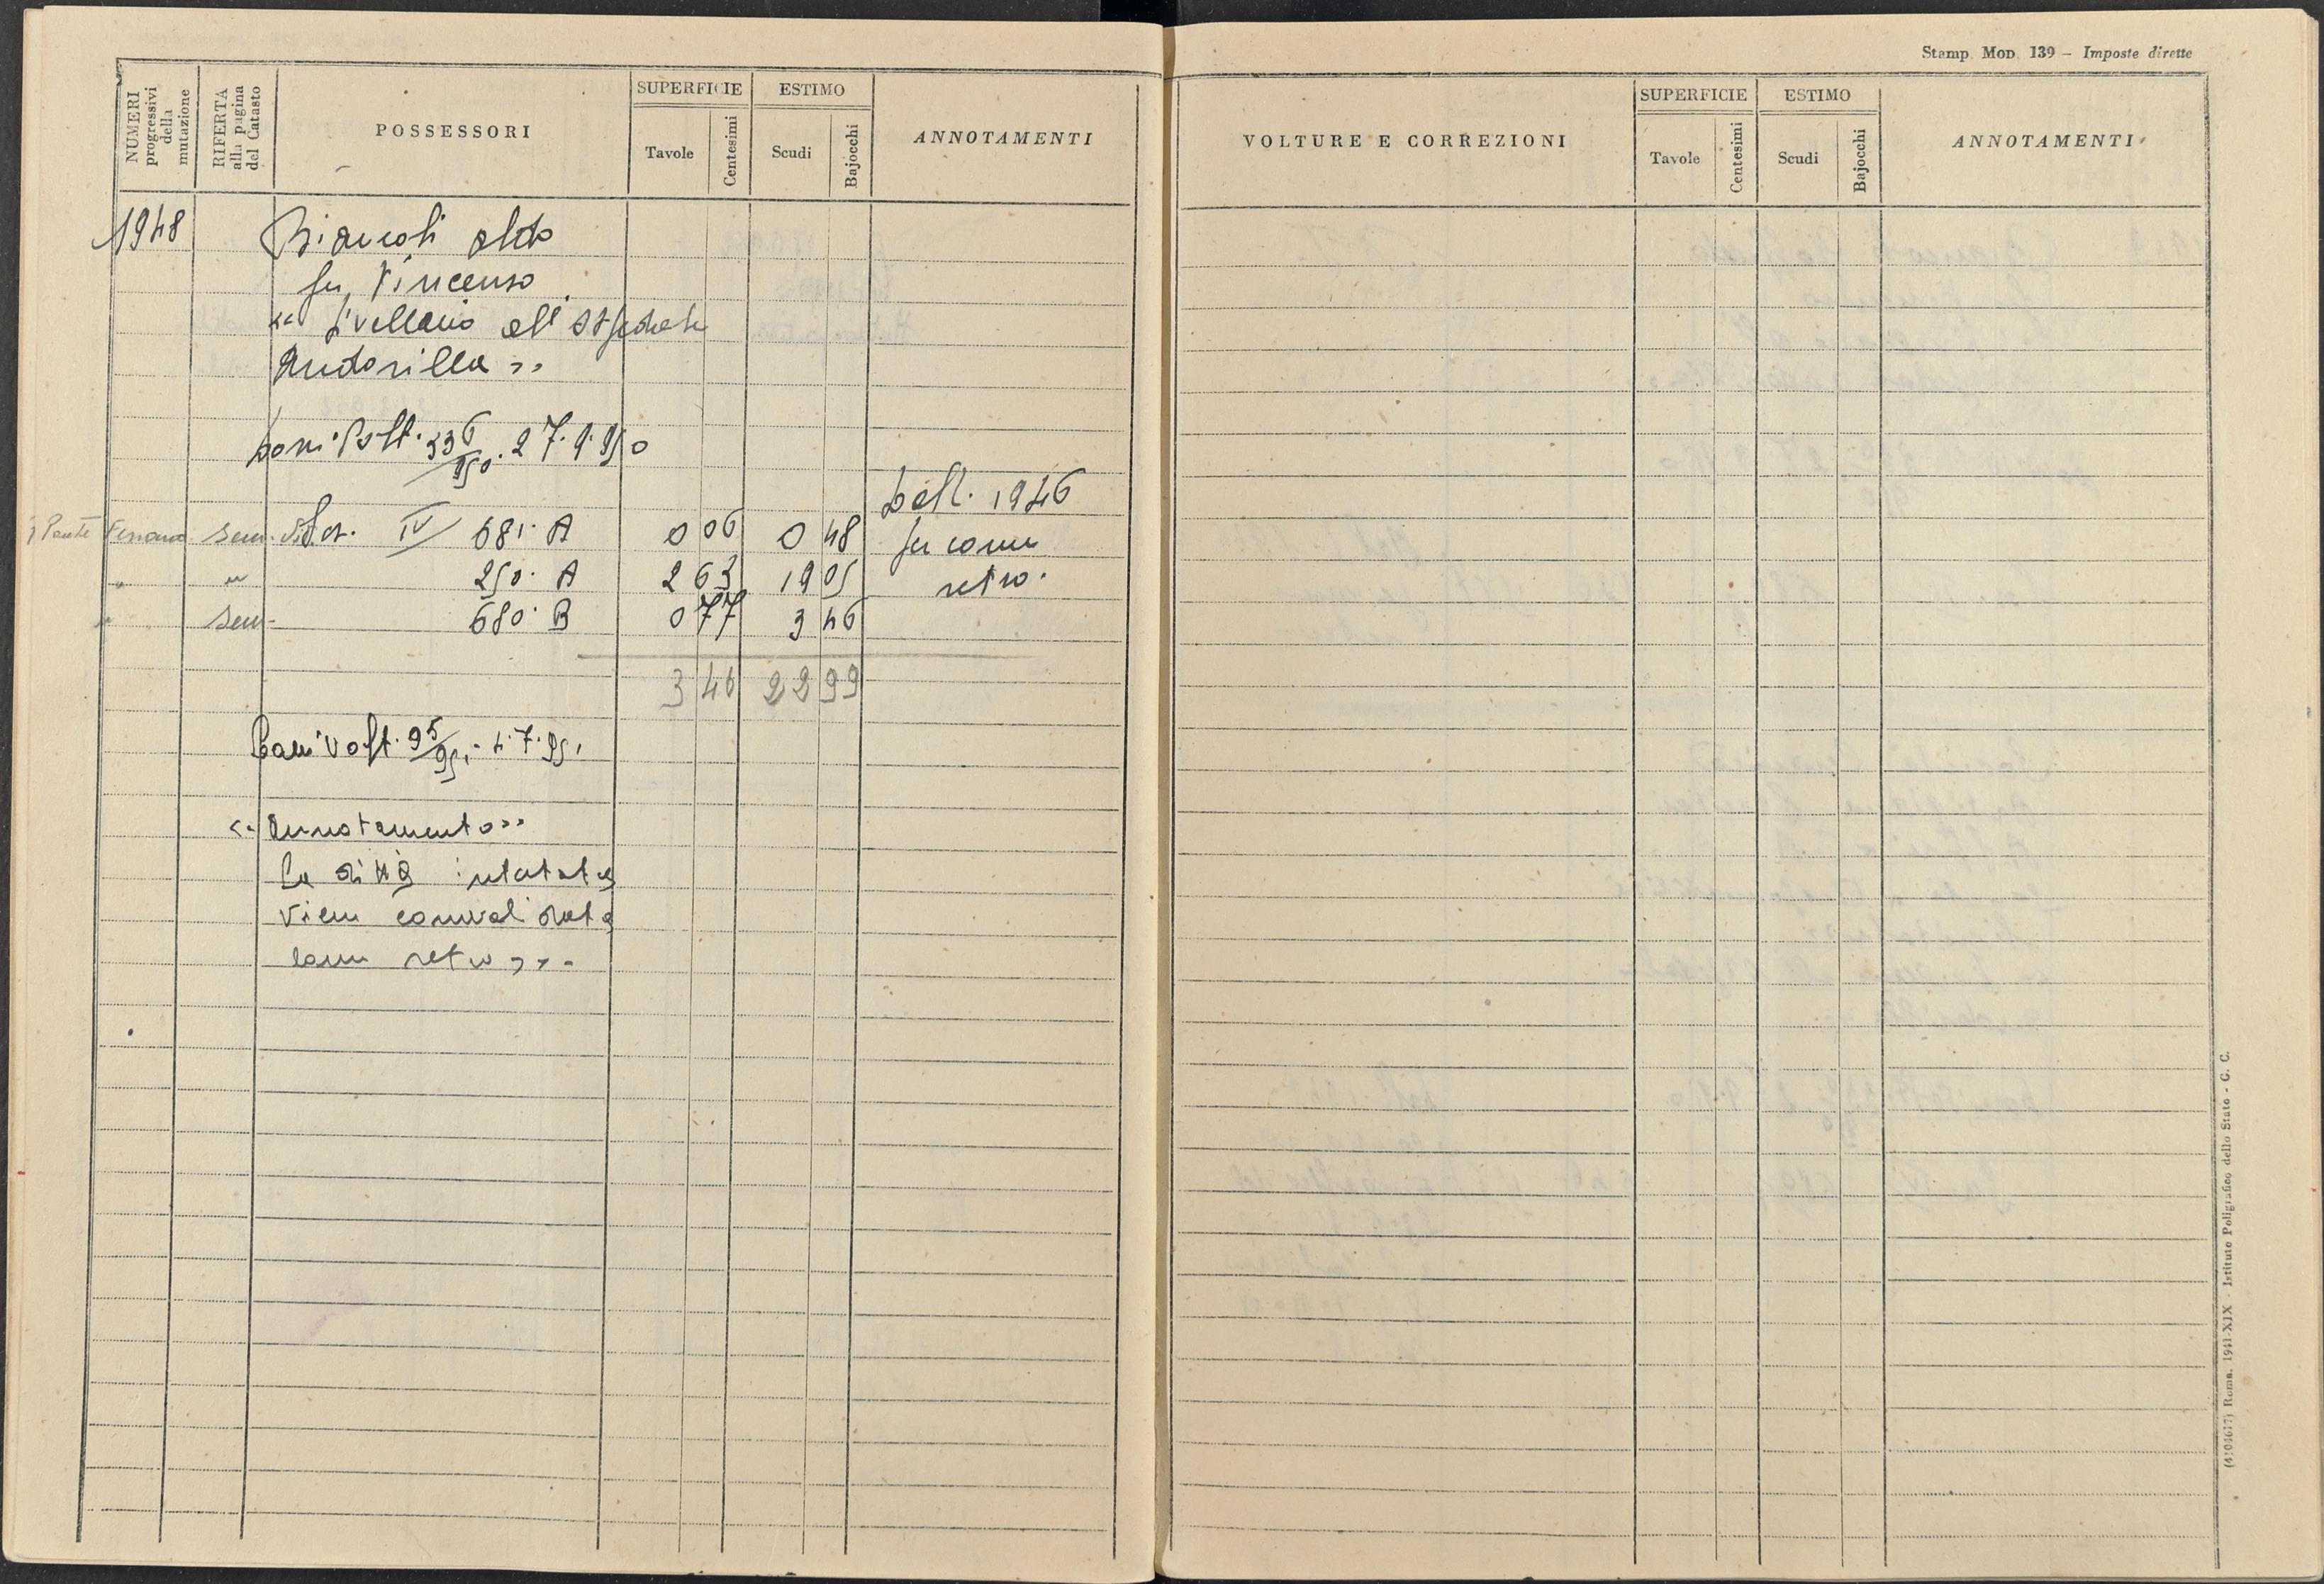 Stamp. Mod. 139 – Imposte dirette
NUMERI progressivi della mutazione
RIFERTA alla pagina del Catasto
POSSESSORI
SUPERFICIE
Tavole
Centesimi
ESTIMO
Scudi
Bajocchi
ANNOTAMENTI
VOLTURE E CORREZIONI
SUPERFICIE
Tavole
Centesimi
ESTIMO
Scudi
Bajocchi
ANNOTAMENTI
1948
Aldo
fu Vincenzo
" Livellario all'Ospedale
"
Volt. 336/950. 27.9.950
1946
Sem. IV 681. A 0 06 0 48 fu come
" " 250. A 2 63 19 05 retro.
" Sem. 680. B 0 77 3 46
3 46 22 99
Volt. 95/951. 7.951
"Annotamento"
La ditta intestata
viene convalidata
come retro".
(410467) Roma, 1941-XIX - Istituto Poligrafico dello Stato - G. C.